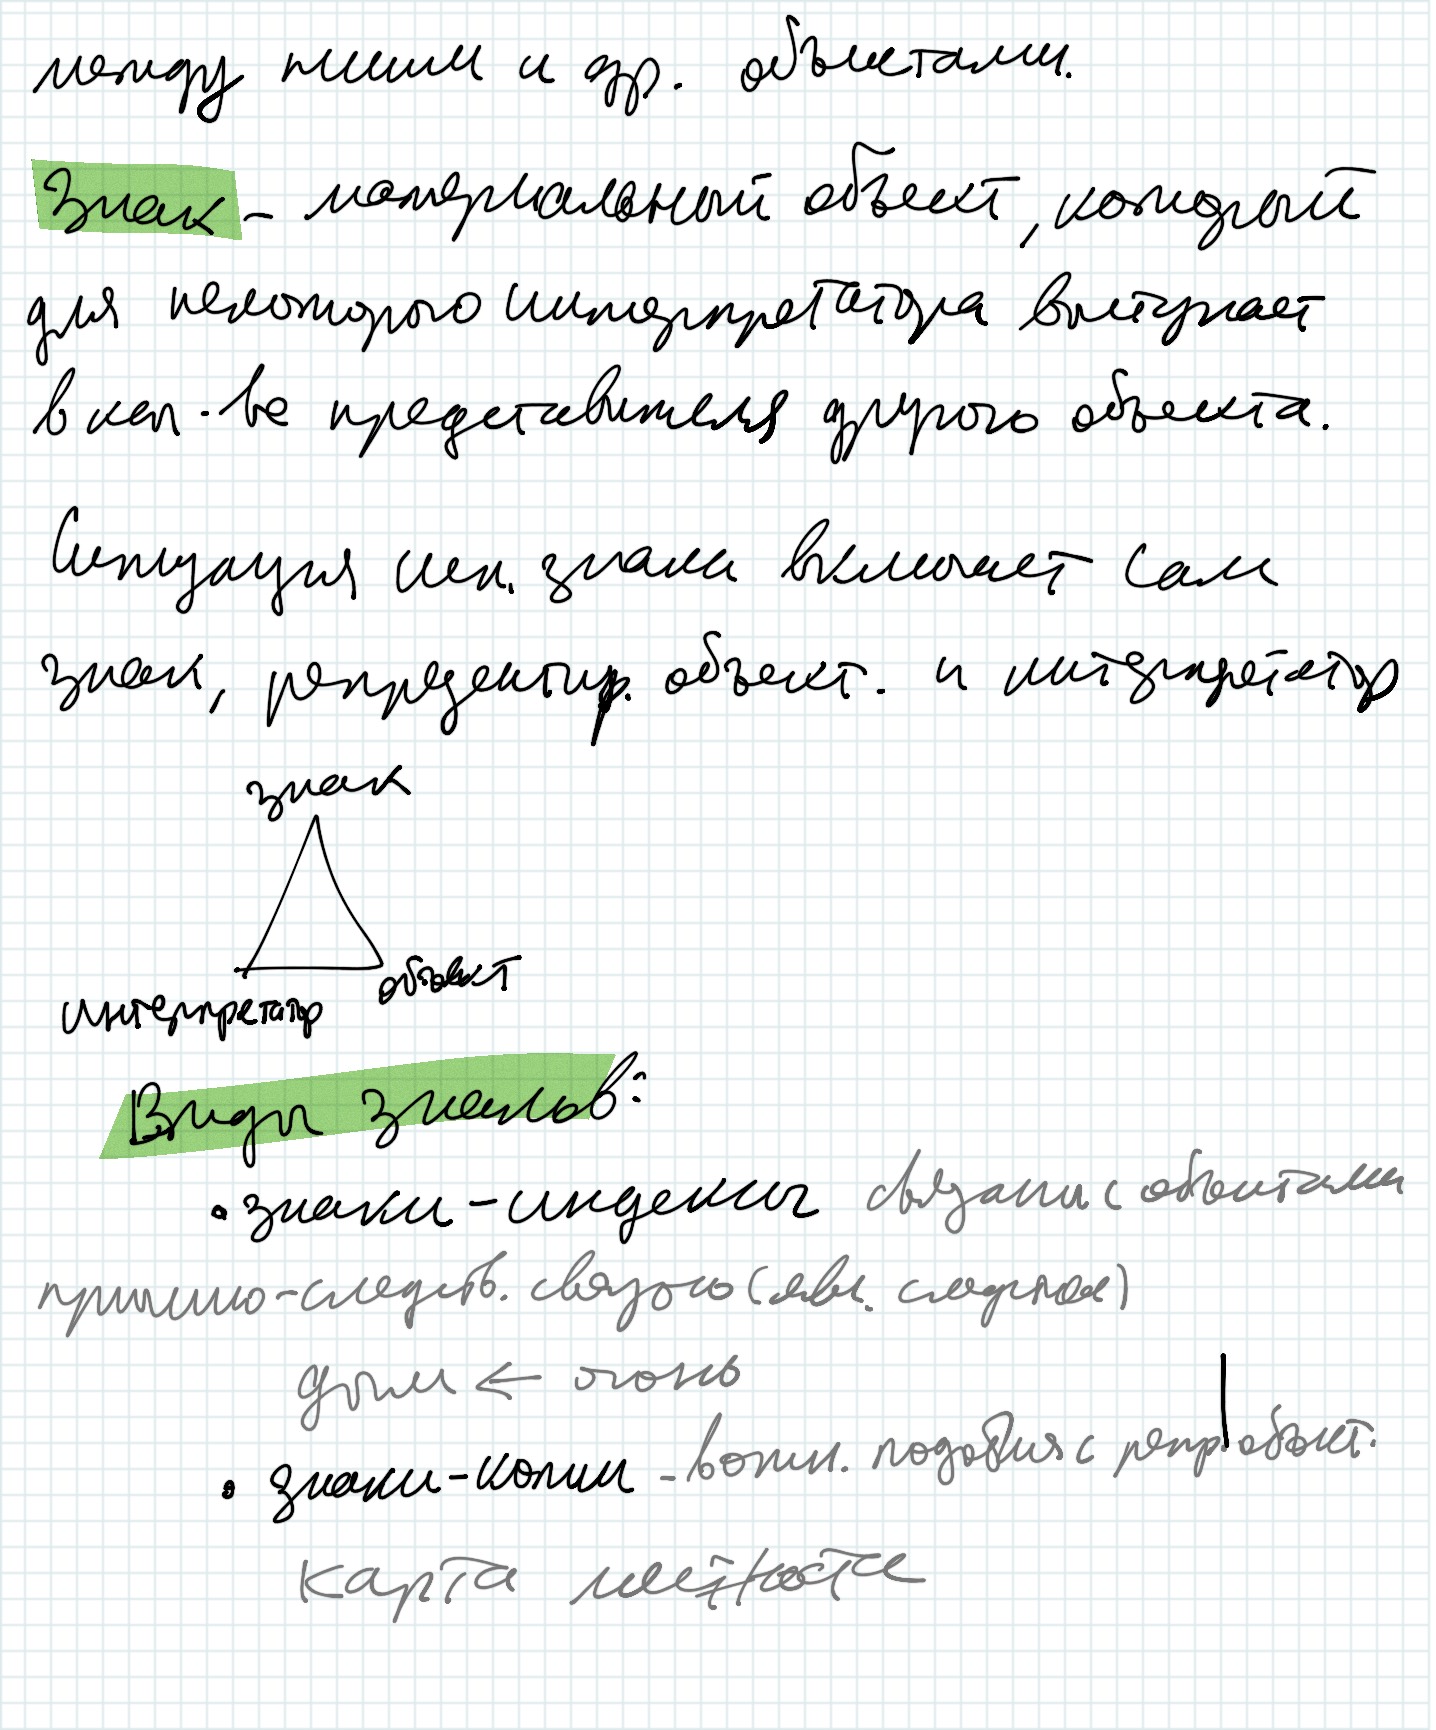 между ними и др. объектами.
Знак - материальный объект, который
для некоторого интерпретатора выступает
в кач-ве представителя другого объекта.
Ситуация исп. знака включает сам
знак, репрезентир. объект. и интерпретатор
знак
объект
интерпретатор
Виды знаков:
• знаки-индексы связаны с объектами
причинно-следств. связью (явл. следствия)
дым ← огонь
• знаки-копии - подобия с репр. объект.
карта местности